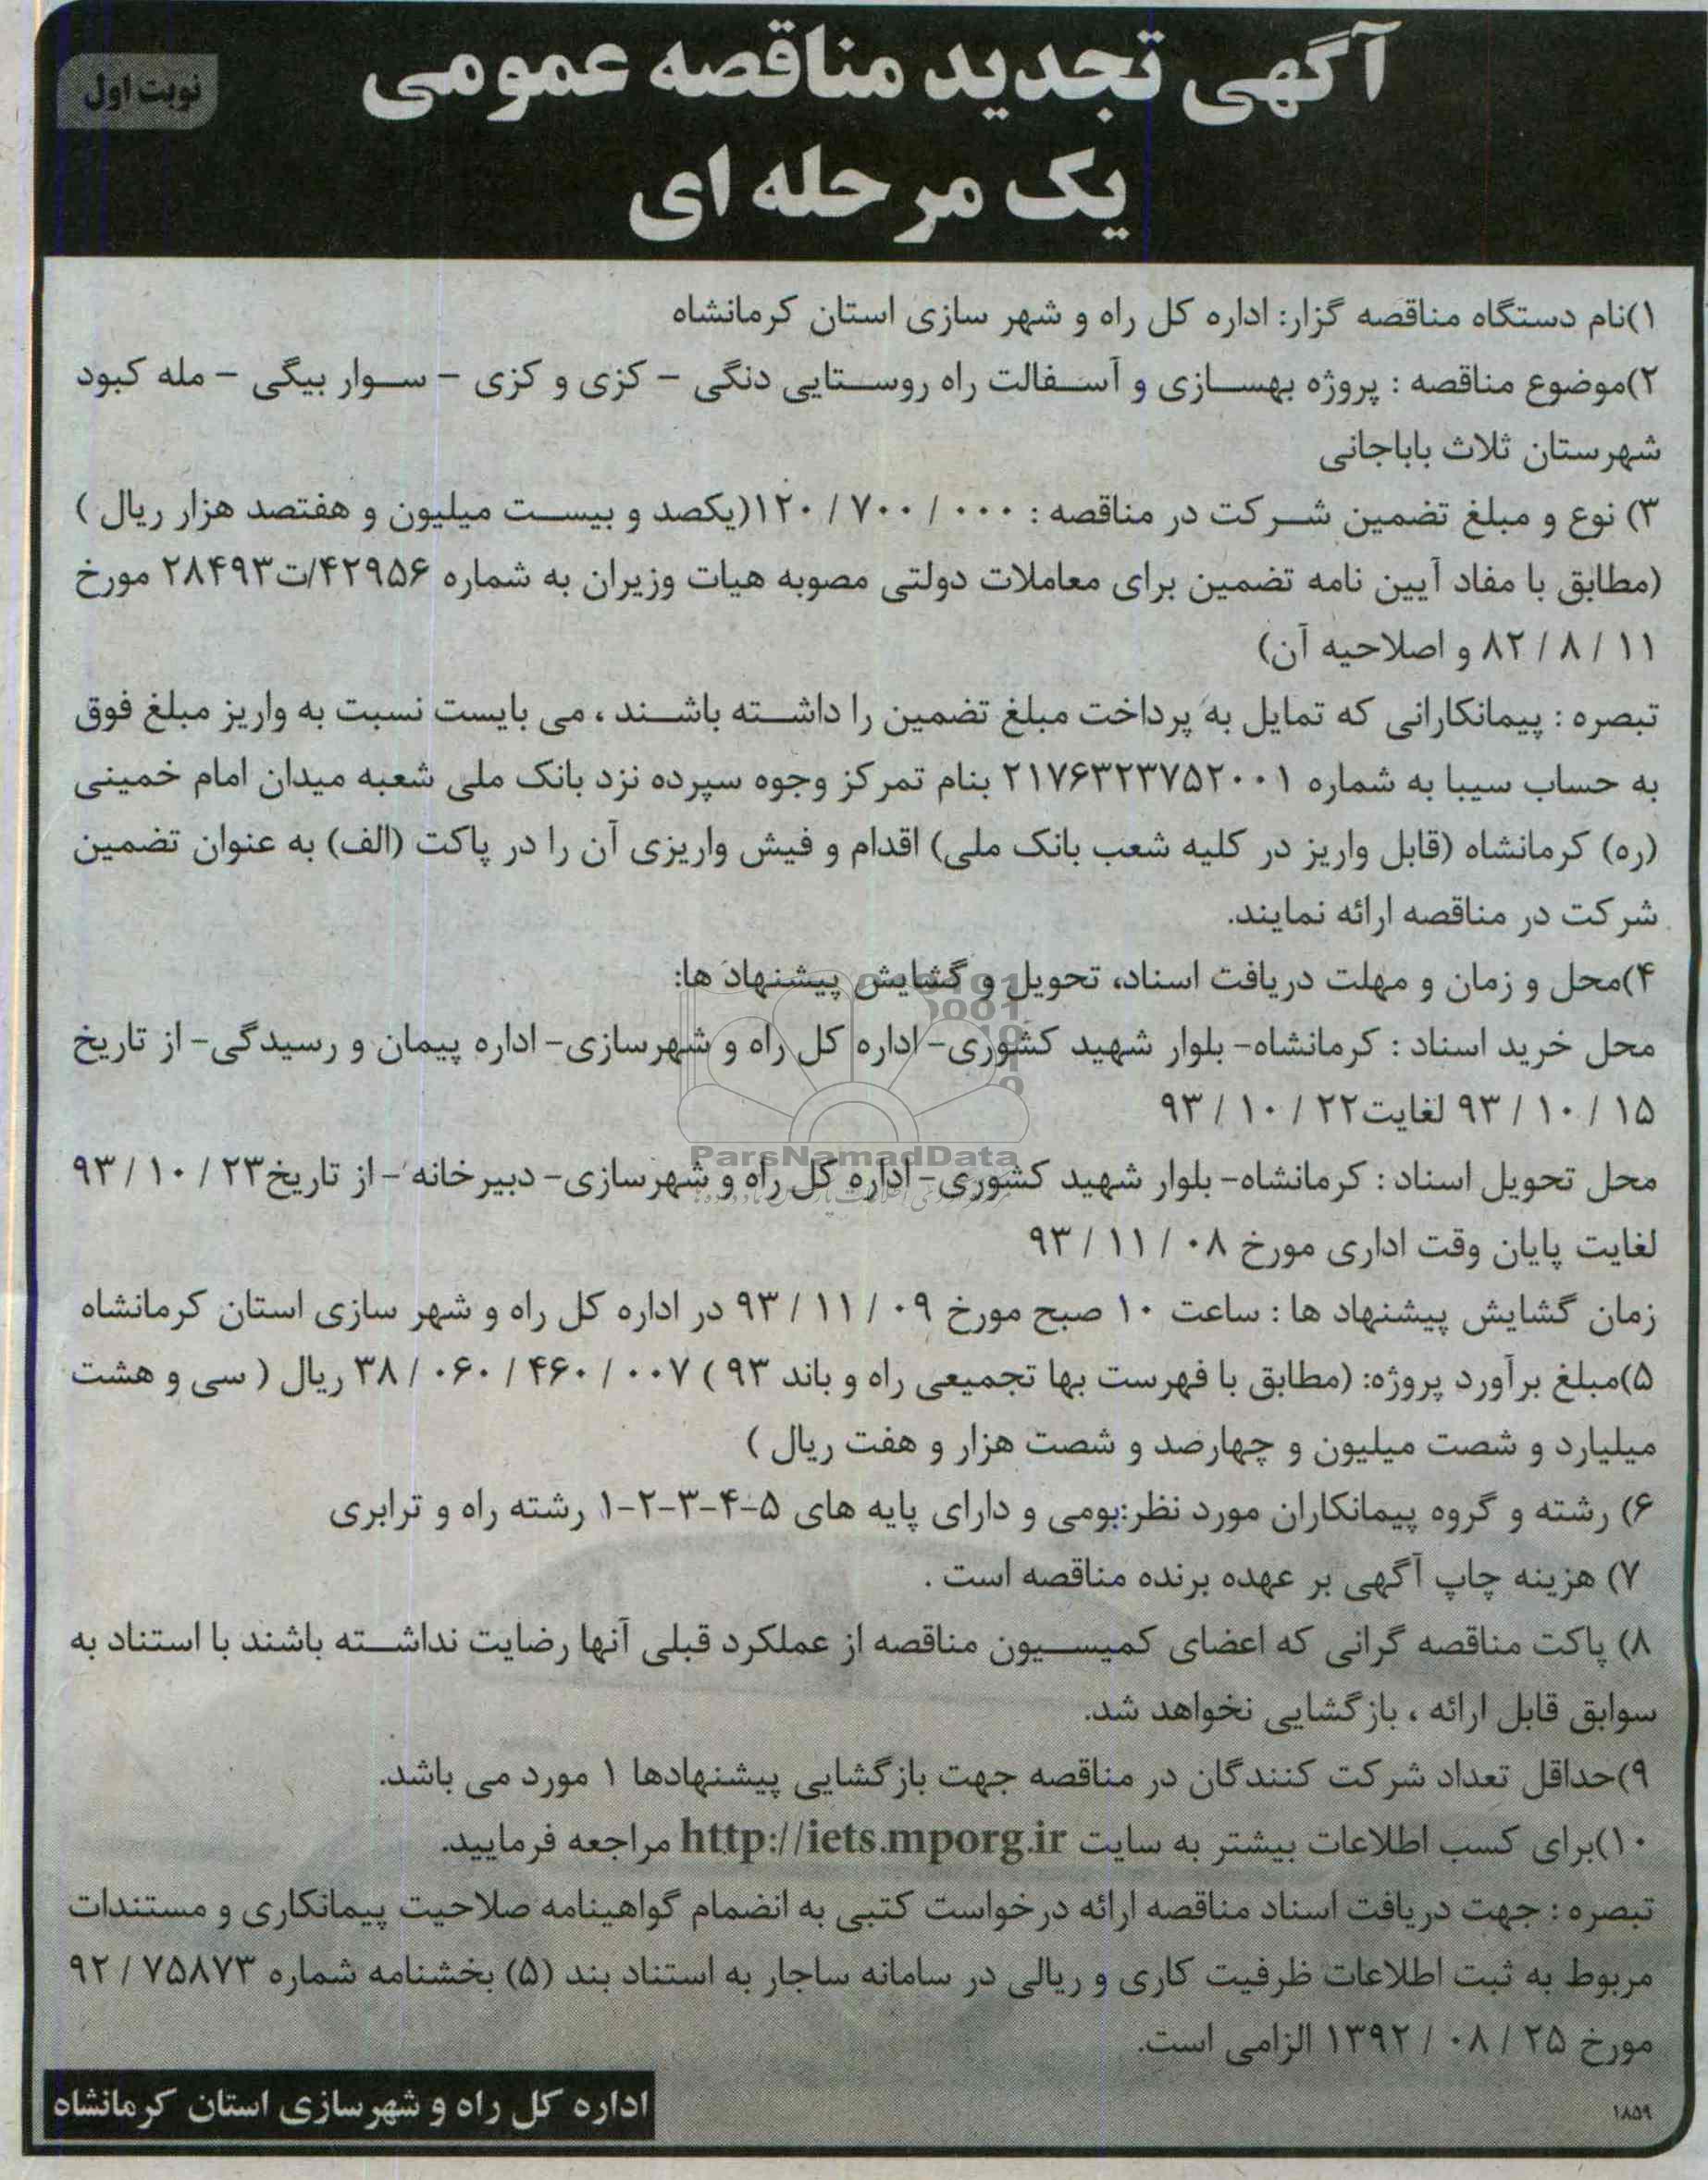 آگهی تجدید مناقصه عمومی
نوبت اول
یک مرحله ای
۱)نام دستگاه مناقصه گزار: اداره کل راه و شهر سازی استان کرمانشاه
۲)موضوع مناقصه : پروژه بهسازی و آسفالت راه روستایی دنگی – کزی و کزی – سوار بیگی – مله کبود
شهرستان ثلاث باباجانی
۳) نوع و مبلغ تضمین شرکت در مناقصه : ۱۲۰/۷۰۰/۰۰۰(یکصد و بیست میلیون و هفتصد هزار ریال )
(مطابق با مفاد آیین نامه تضمین برای معاملات دولتی مصوبه هیات وزیران به شماره ۴۲۹۵۶/ت۲۸۴۹۳ مورخ
۸۲/۸/۱۱ و اصلاحیه آن)
تبصره : پیمانکارانی که تمایل به پرداخت مبلغ تضمین را داشته باشند ، می بایست نسبت به واریز مبلغ فوق
به حساب سیبا به شماره ۲۱۷۶۳۲۳۷۵۲۰۰۱ بنام تمرکز وجوه سپرده نزد بانک ملی شعبه میدان امام خمینی
(ره) کرمانشاه (قابل واریز در کلیه شعب بانک ملی) اقدام و فیش واریزی آن را در پاکت (الف) به عنوان تضمین
شرکت در مناقصه ارائه نمایند.
۴)محل و زمان و مهلت دریافت اسناد، تحویل و گشایش پیشنهاد ها:
محل خرید اسناد : کرمانشاه- بلوار شهید کشوری- اداره کل راه و شهرسازی- اداره پیمان و رسیدگی- از تاریخ
۹۳/۱۰/۱۵ لغایت۹۳/۱۰/۲۲
ParsNamadData
محل تحویل اسناد : کرمانشاه- بلوار شهید کشوری- اداره کل راه و شهرسازی- دبیرخانه - از تاریخ۹۳/۱۰/۲۳
لغایت پایان وقت اداری مورخ ۹۳/۱۱/۰۸
زمان گشایش پیشنهاد ها : ساعت ۱۰ صبح مورخ ۹۳/۱۱/۰۹ در اداره کل راه و شهر سازی استان کرمانشاه
۵)مبلغ برآورد پروژه: (مطابق با فهرست بها تجمیعی راه و باند ۹۳ ) ۳۸/۰۶۰/۴۶۰/۰۰۷ ریال ( سی و هشت
میلیارد و شصت میلیون و چهارصد و شصت هزار و هفت ریال )
۶) رشته و گروه پیمانکاران مورد نظر:بومی و دارای پایه های ۵-۴-۳-۲-۱ رشته راه و ترابری
۷) هزینه چاپ آگهی بر عهده برنده مناقصه است .
۸) پاکت مناقصه گرانی که اعضای کمیسیون مناقصه از عملکرد قبلی آنها رضایت نداشته باشند با استناد به
سوابق قابل ارائه ، بازگشایی نخواهد شد.
۹)حداقل تعداد شرکت کنندگان در مناقصه جهت بازگشایی پیشنهادها ۱ مورد می باشد.
۱۰)برای کسب اطلاعات بیشتر به سایت http://iets.mporg.ir مراجعه فرمایید.
تبصره : جهت دریافت اسناد مناقصه ارائه درخواست کتبی به انضمام گواهینامه صلاحیت پیمانکاری و مستندات
مربوط به ثبت اطلاعات ظرفیت کاری و ریالی در سامانه ساجار به استناد بند (۵) بخشنامه شماره ۹۲/۷۵۸۷۳
مورخ ۱۳۹۲/۰۸/۲۵ الزامی است.
۱۸۵۹
اداره کل راه و شهرسازی استان کرمانشاه